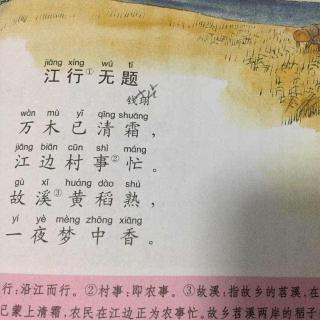 jiāng xíng wú tí
江行①无题
钱珝
wàn mù yǐ qīng shuāng
万木已清霜，
jiāng biān cūn shì máng
江边村事②忙。
gù xī huáng dào shú
故溪③黄稻熟，
yí yè mèng zhōng xiāng
一夜梦中香。
行：沿江而行。②村事：即农事。③故溪：指故乡的苕溪，在
已蒙上清霜，农民在江边正为农事忙。故乡苕溪两岸的稻子